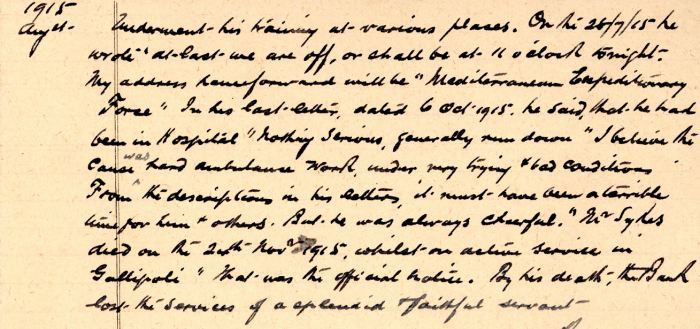 1915
Augst
Underwent his training at various places. On the 28/7/15 he
wrote "at last we are off, or shall be at 11 oclock tonight.
My address henceforward will be "Mediterranean Expeditionary
Force" In his last letter, dated 6 Oct 1915. he said, that he had
been in Hospital "Nothing serious, generally run down" I believe the
cause was hard ambulance work, under very trying & bad conditions
From the descriptions in his letters, it must have been a terrible
time for him & others. But he was always cheerful. "Mr Sykes
died on the 24th Novr 1915, whilst on active service in
Gallipoli" That was the official notice. By his death, the Bank
lost the services of a splendid & faithful servant